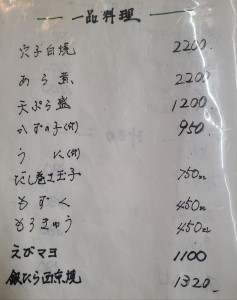 一品料理
穴子白焼 2200.
あら煮 2200.
天ぷら盛 1200.
かずの子(付) 950.
うに(付)
だし巻き玉子 750
もずく 450
もろきゅう 450
えびマヨ 1100
銀ひら西京焼 1320.